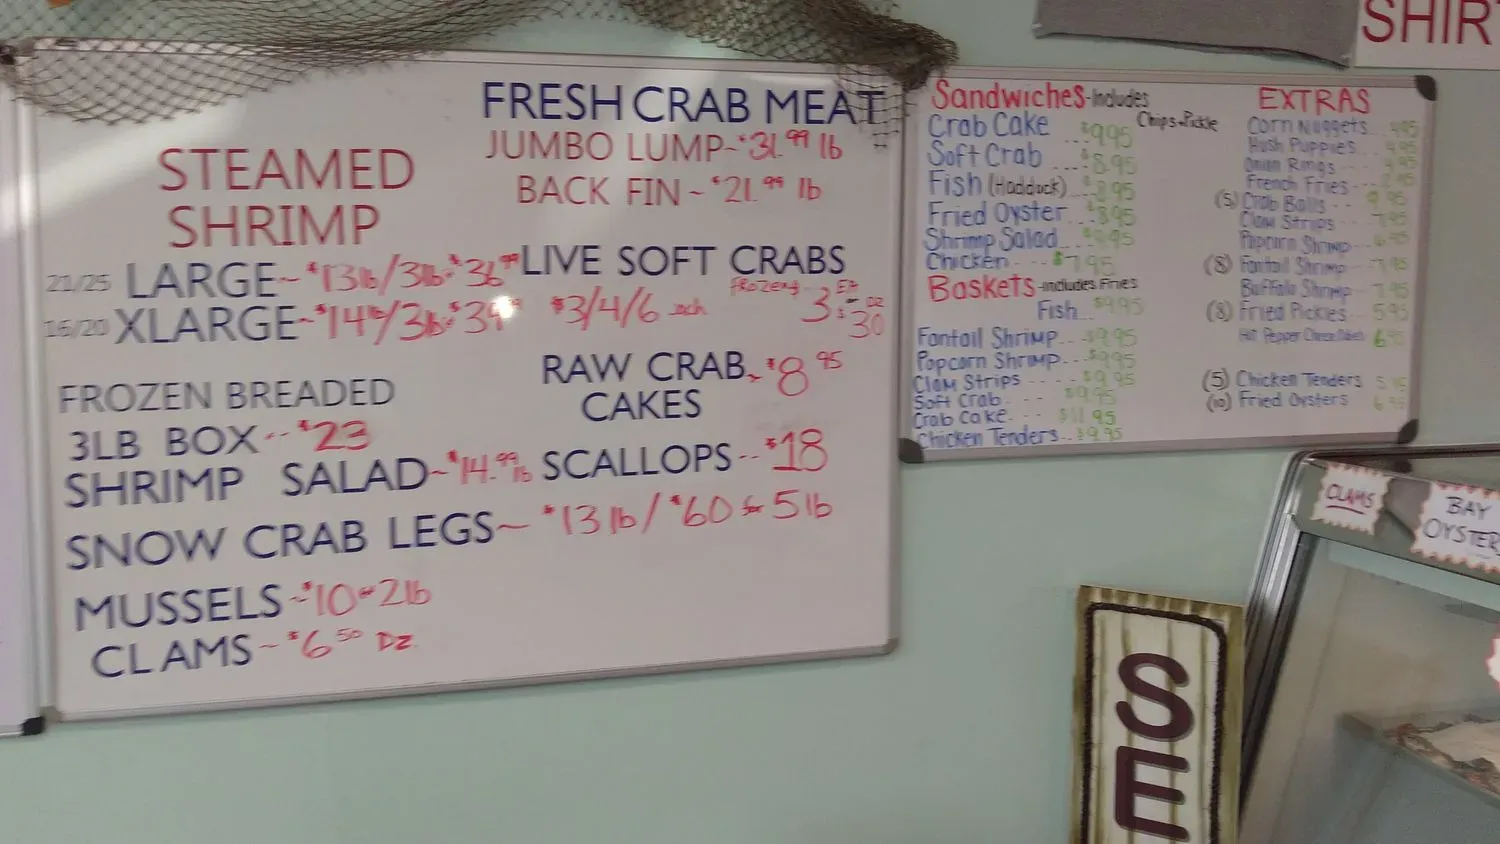 STEAMED
SHRIMP
21/25 LARGE~ $13 lb/3lb-$36.99
16/20 XLARGE~$14 lb/3lb-$39
FROZEN BREADED
3LB BOX--$23
SHRIMP SALAD~$14.99 lb
SNOW CRAB LEGS~ $13 lb/$60 for 5 lb
MUSSELS-$10-2lb
CLAMS~$6.50 DZ.
FRESH CRAB MEAT
JUMBO LUMP~$31.99 lb
BACK FIN~$21.99 lb
LIVE SOFT CRABS
$3/4/6 each
FROZEN 3 EA
DZ
$30
RAW CRAB~$8.95
CAKES
SCALLOPS--$18
Sandwiches-includes
Chips+Pickle
Crab Cake $9.95
Soft Crab $8.95
Fish (Haddock)...$8.95
Fried Oyster...$8.95
Shrimp Salad
Chicken---$7.95
Baskets-includes Fries
Fish..$9.95
Fantail Shrimp..-$9.95
Popcorn Shrimp...$9.95
Clam Strips----$9.95
Soft Crab....$9.95
Crab Cake...$11.95
Chicken Tenders..$9.95
EXTRAS
Corn Nuggets
Hush Puppies
Onion Rings
French Fries
(5) Crab Balls
Clam Strips
Popcorn Shrimp
(8) Fantail Shrimp
Buffalo Shrimp
(8) Fried Pickles 5.95
Hot Pepper Cheese
(5) Chicken Tenders
(10) Fried Oysters
SHIR
CLAMS
BAY
OYSTERS
SE